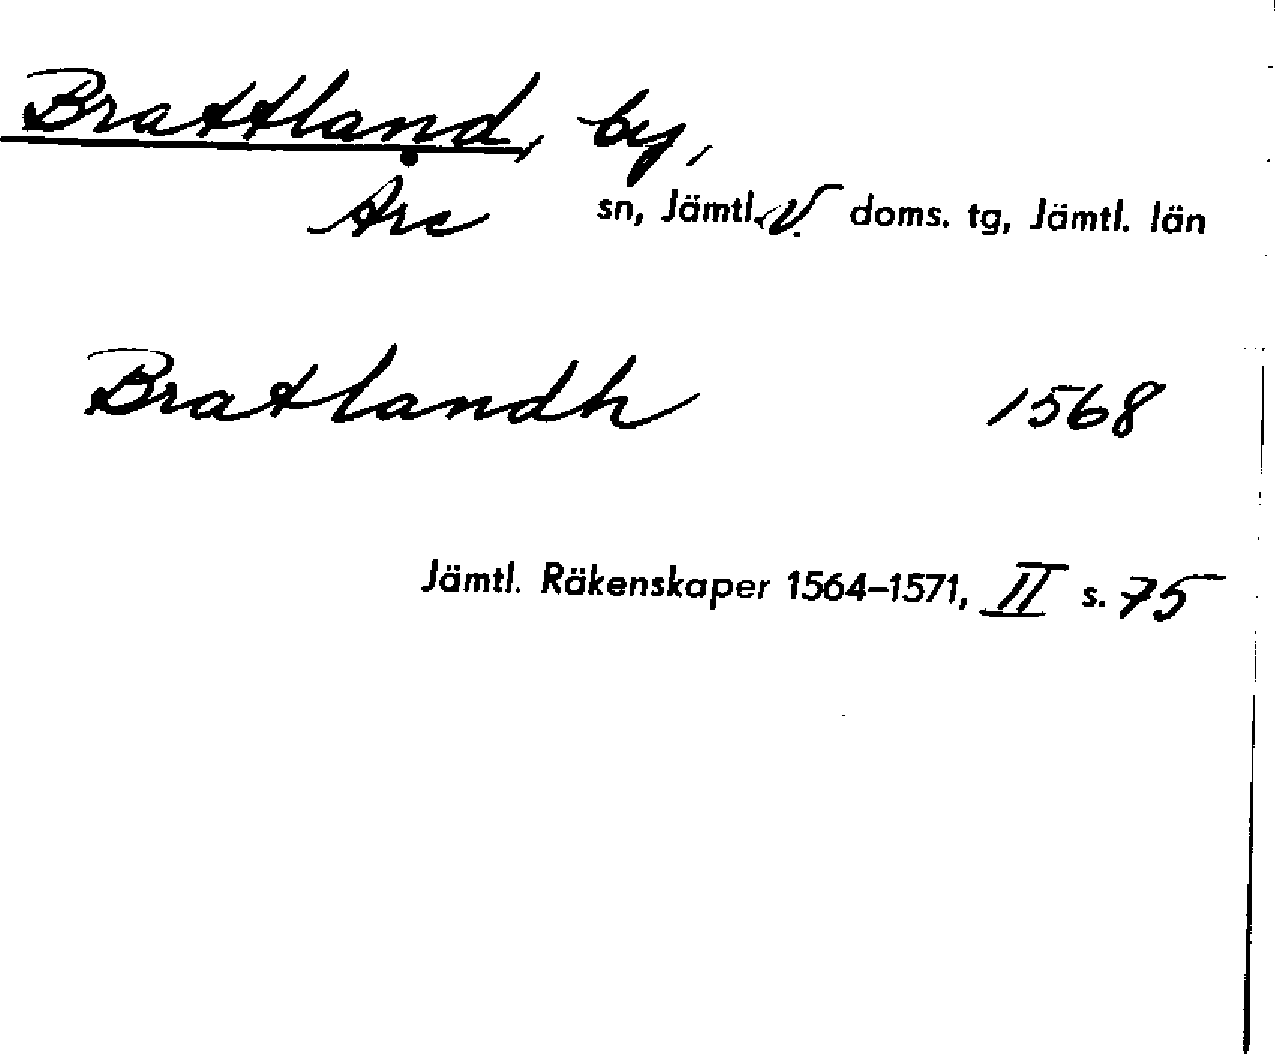 Brattland, by,
Åre sn, Jämtl. V. doms. tg, Jämtl. län
Bratlandh 1568
Jämtl. Räkenskaper 1564–1571, II s. 75